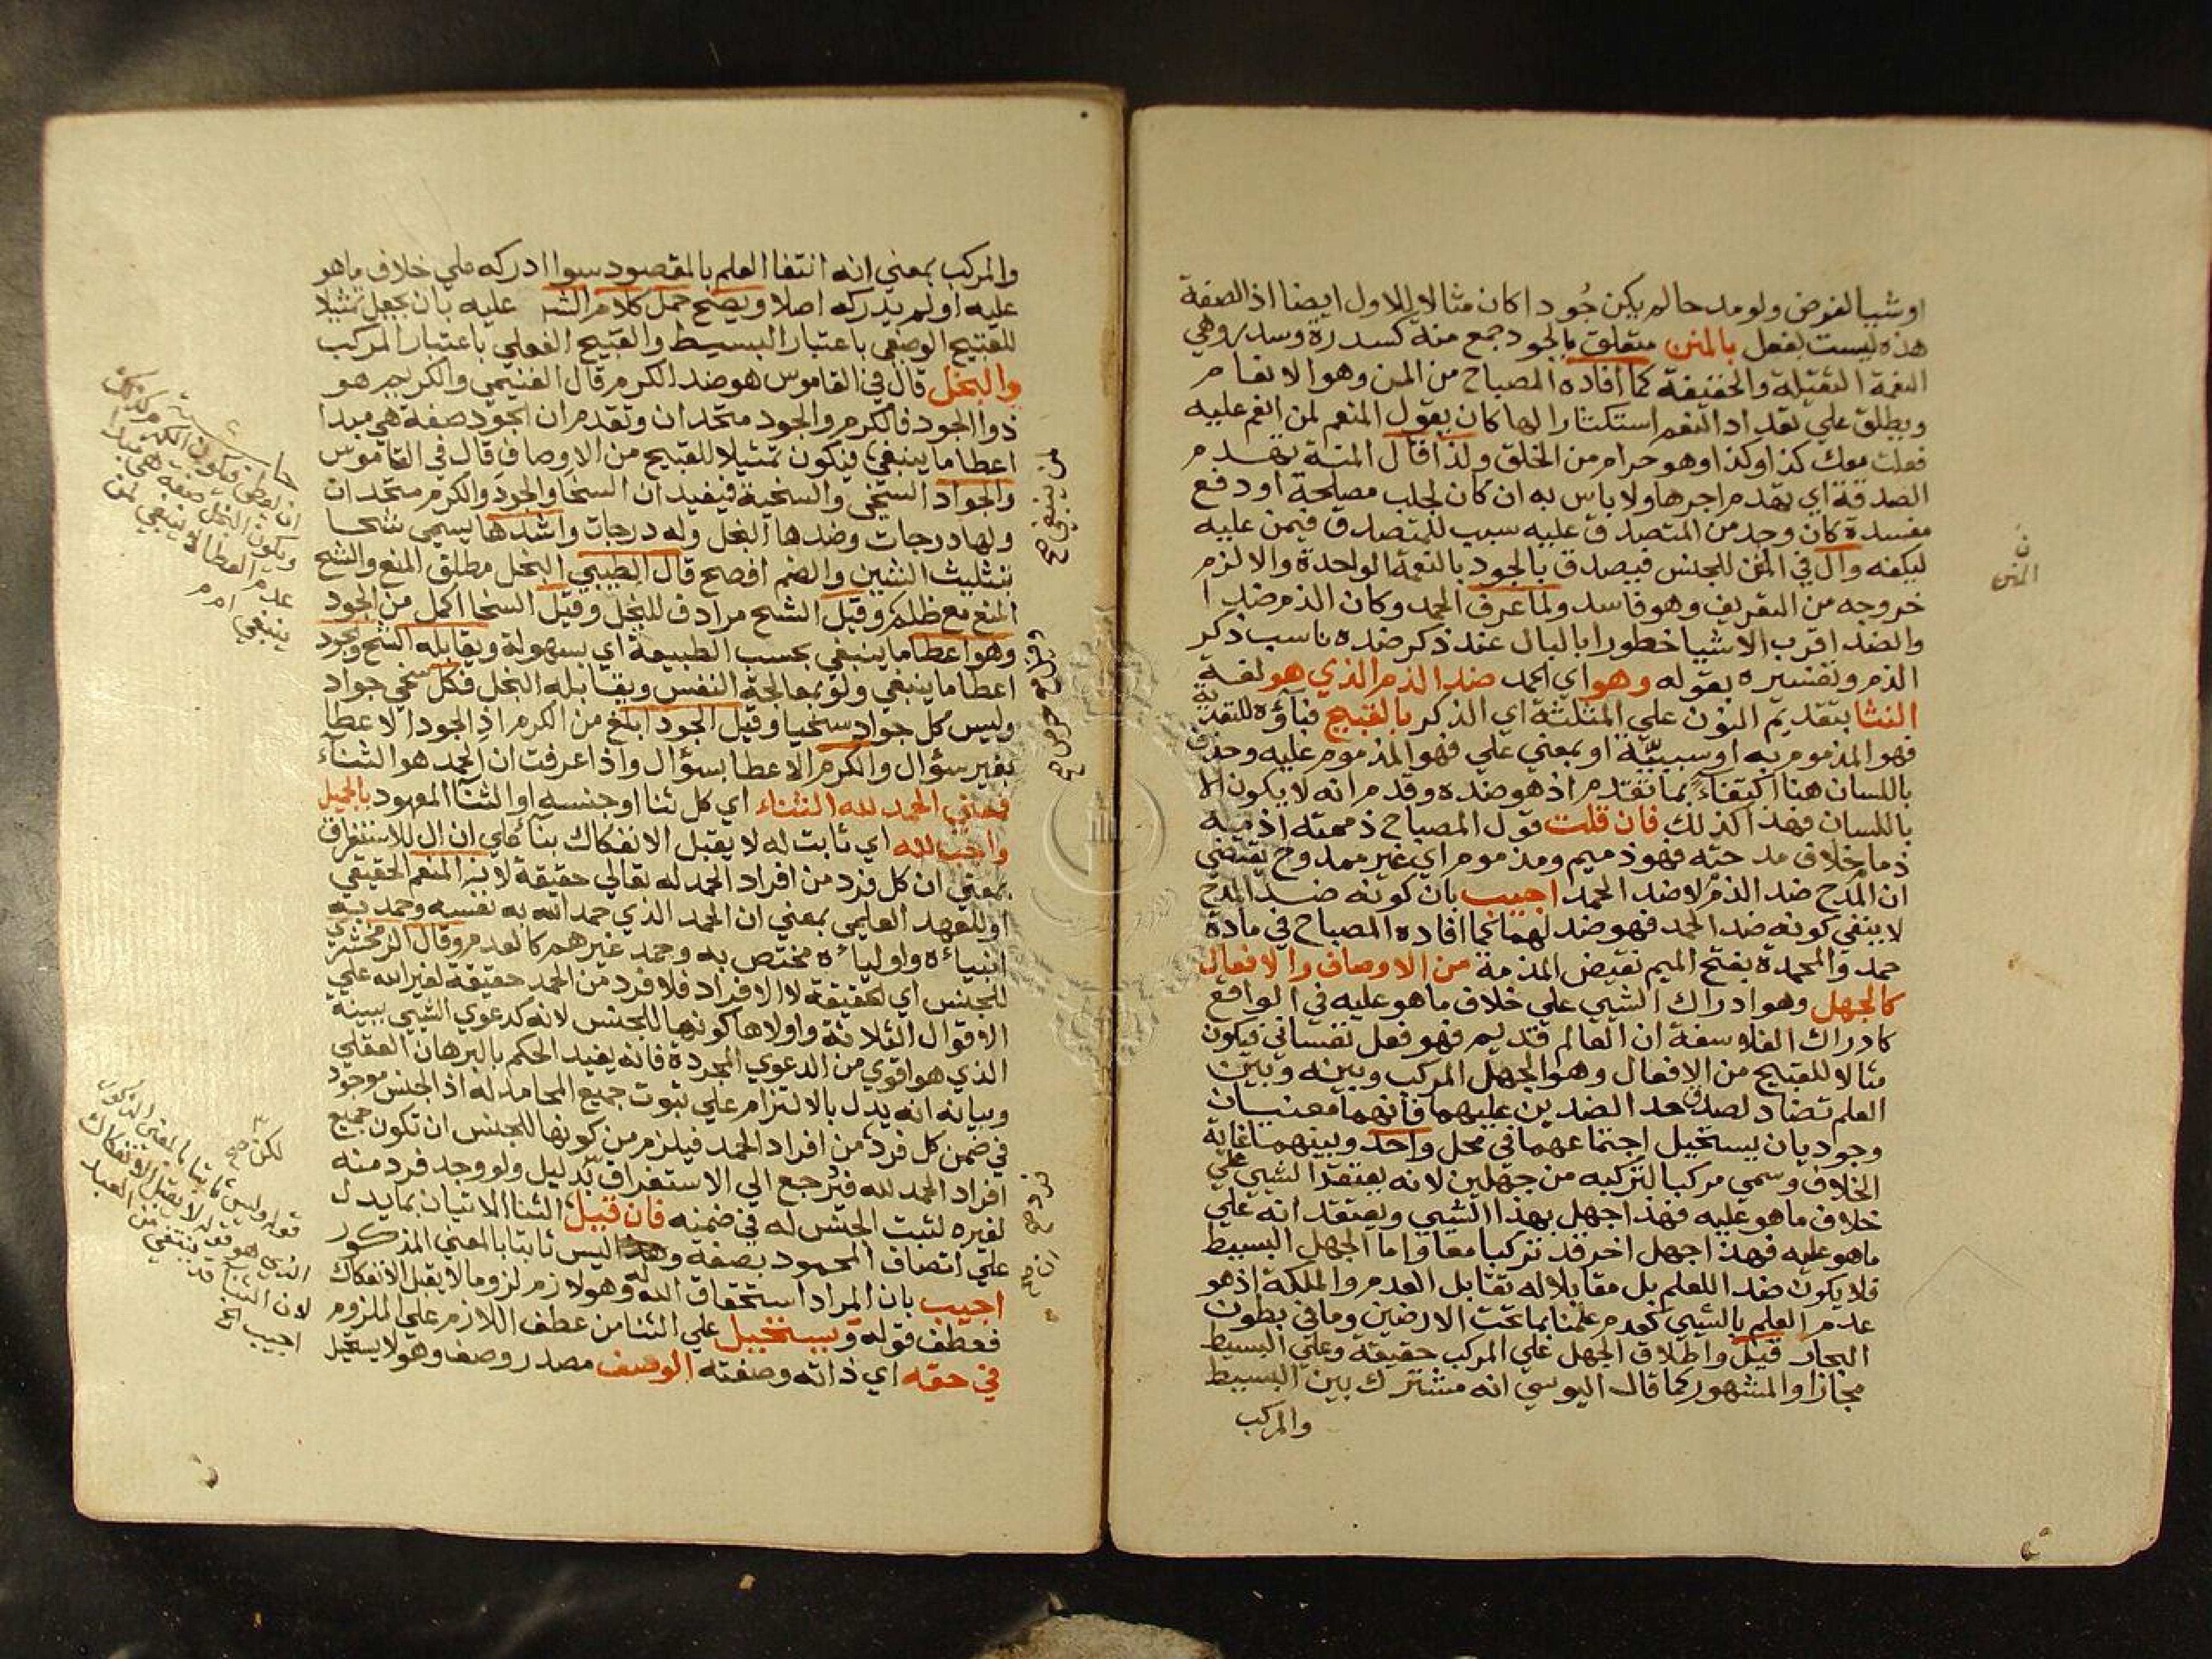 او شبيا لغرض ولو مدحا لم يكن جُودا كان مثالا للاول ايضا اذ الصفة
هذه ليست بفعل بالمنن متعلق بالجود جمع منه كسدرة وسدر وهي
النعمة الثقيلة والخفيفة كما افاده المصباح من المن وهو الانعام
ويطلق علي تعداد النعم استكثارا لها كان يقول المنعم لمن انعم عليه
فعلت معك كذا وكذا وهو حرام من الخلق ولذا قال المنة تهدم
الصدقة اي تهدم اجرها ولا باس به ان كان لجلب مصلحة او دفع
مفسدة كان وجد من المتصدق عليه سبب للمتصدق فيمن عليه
ليكفه وال في المنن للجنس فيصدق بالجود بالنعمة الواحدة والا لزم
خروجه من التعريف وهو فاسد ولما عرف الحمد وكان الذم ضدا
والضد اقرب الاشيا خطورا بالبال عند ذكر ضده ناسب ذكر
الذم وتفسيره بقوله وهو اي الحمد ضد الذم الذي هو لغة
النثا بتقديم النون علي المثلثة اي الذكر بالقبيح فباؤه للتعدية
فهو المذموم به او سببيّة او بمعني علي فهو المذموم عليه وحذف
باللسان هنا اكتفاءً بما تقدم اذ هو ضده وقدم انه لا يكون الا
باللسان فهذا كذلك فان قلت قول المصباح ذممته اذمه
ذما خلاف مدحته فهو ذميم ومذموم اي غير ممدوح يقتضي
ان المدح ضد الذم لا ضد الحمد اجيب بان كونه ضد المدح
لا ينفي كونه ضد الحمد فهو ضد لهما كما افاده المصباح في مادة
حمد والمحمدة بفتح الميم نقيض المذمة من الاوصاف والافعال
كالجهل وهو ادراك الشيي علي خلاف ما هو عليه في الواقع
كادراك الفلاسفة ان العالم قديم فهو فعل نفساني فيكون
مثالا للقبيح من الافعال وهو الجهل المركب وبينه وبين
العلم تضاد لصدق حد الضدين عليهما فانهما معنيان
وجوديان يستحيل اجتماعهما في محل واحد وبينهما غاية
الخلاف وسمي مركبا لتركبه من جهلين لانه يعتقد الشيي علي
خلاف ما هو عليه فهذا جهل بهذا الشيي ويعتقد انه علي
ما هو عليه فهذا جهل اخر قد تركبا معا واما الجهل البسيط
فلا يكون ضدا للعلم بل مقابلا له تقابل العدم والملكة اذ هو
عدم العلم بالشيي كعدم علمنا بما تحت الارضين وما في بطون
البحار قيل واطلاق الجهل علي المركب حقيقة وعلي البسيط
مجازا والمشهور كما قال اليوسي انه مشترك بين البسيط
والمركب
ن
المنن
والمركب بمعني انه انتفا العلم بالمقصود سوا ادركه علي خلاف ما هو
عليه او لم يدركه اصلا ويصح حمل كلام الشر عليه بان يجعل تمثيلا
للقبيح الوصفي باعتبار البسيط والقبيح الفعلي باعتبار المركب
والبخل قال في القاموس هو ضد الكرم قال الغنيمي والكريم هو
ذوا الجود فالكرم والجود متحدان وتقدم ان الجود صفة هي مبدا
اعطا ما ينبغي فيكون تمثيلا للقبيح من الاوصاف قال في القاموس
والجواد السخي والسخية فيفيد ان السخا والجود والكرم متحدان
ولها درجات وضدها البخل وله درجات واشدها يسمي شحا
بتثليث الشين والضم افصح قال الطيبي البخل مطلق المنع والشح
المنع مع ظلم وقيل الشح مرادف للبخل وقيل السخا اكمل من الجود
وهو اعطا ما ينبغي بحسب الطبيعة اي بسهولة ويقابله الشح والجود
اعطا ما ينبغي ولو بمعالجة النفس ويقابله البخل فكل سخي جواد
وليس كل جواد سخيا وقيل الجود ابلغ من الكرم اذ الجود الاعطا
بغير سؤال والكرم الاعطا بسؤال واذا عرفت ان الحمد هو الثناء
فمعاني الحمد لله الثناء اي كل ثنا او جنسه او الثنا المعهود بالجميل
واجب لله اي ثابت له لا يقبل الانفكاك بناءً علي ان ال للاستغراق
بمعني ان كل فرد من افراد الحمد له تعالي حقيقة لانه المنعم الحقيقي
او للعهد العلمي بمعني ان الحمد الذي حمد الله به نفسه وحمد به
انبياءه واولياءه مختص به وحمد غيرهم كالعدم وقال الزمخشري
للجنس اي لحقيقة لا الافراد فلا فرد من الحمد حقيقة لغير الله علي
الاقوال الثلاثة واولاها كونها للجنس لانه كدعوي الشيي ببينة
الذي هو اقوي من الدعوي المجردة فانه يفيد الحكم بالبرهان العقلي
وبيانه انه يدل بالالتزام علي ثبوت جميع المحامد له اذ الجنس موجود
في ضمن كل فرد من افراد الحمد فيلزم من كونها للجنس ان تكون جميع
افراد الحمد لله فترجع الي الاستغراق بدليل ولو وجد فرد منه
لغيره لثبت الجنس له في ضمنه فان قيل الثنا الاتيان بما يدل
علي اتصاف المحمود بصفة وهذا ليس ثابتا بالمعني المذكور
اجيب بان المراد استحقاق الله له وهو لازم لزوما لا يقبل الانفكاك
فعطف قوله ويستحيل علي الثنا من عطف اللازم علي الملزوم
في حقه اي ذاته وصفته الوصف مصدر وصف وهو لا يستحيل
لمن ينبغي صح
فرد صح
ان صح
حاشية
ويكون البخل صفة هي مبدا
عدم العطا لا ينبغي لمن
ينبغي ا م م
لكن صح
قوله وليس ثابتا بالمعني المذكور
الذي هو قوله لا يقبل الانفكاك
لان الثنا قد ينتفي من العبد
اجيب الخ